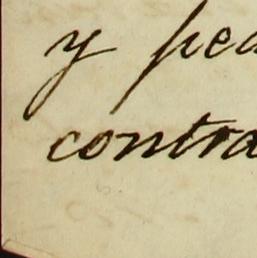 y pea
contra